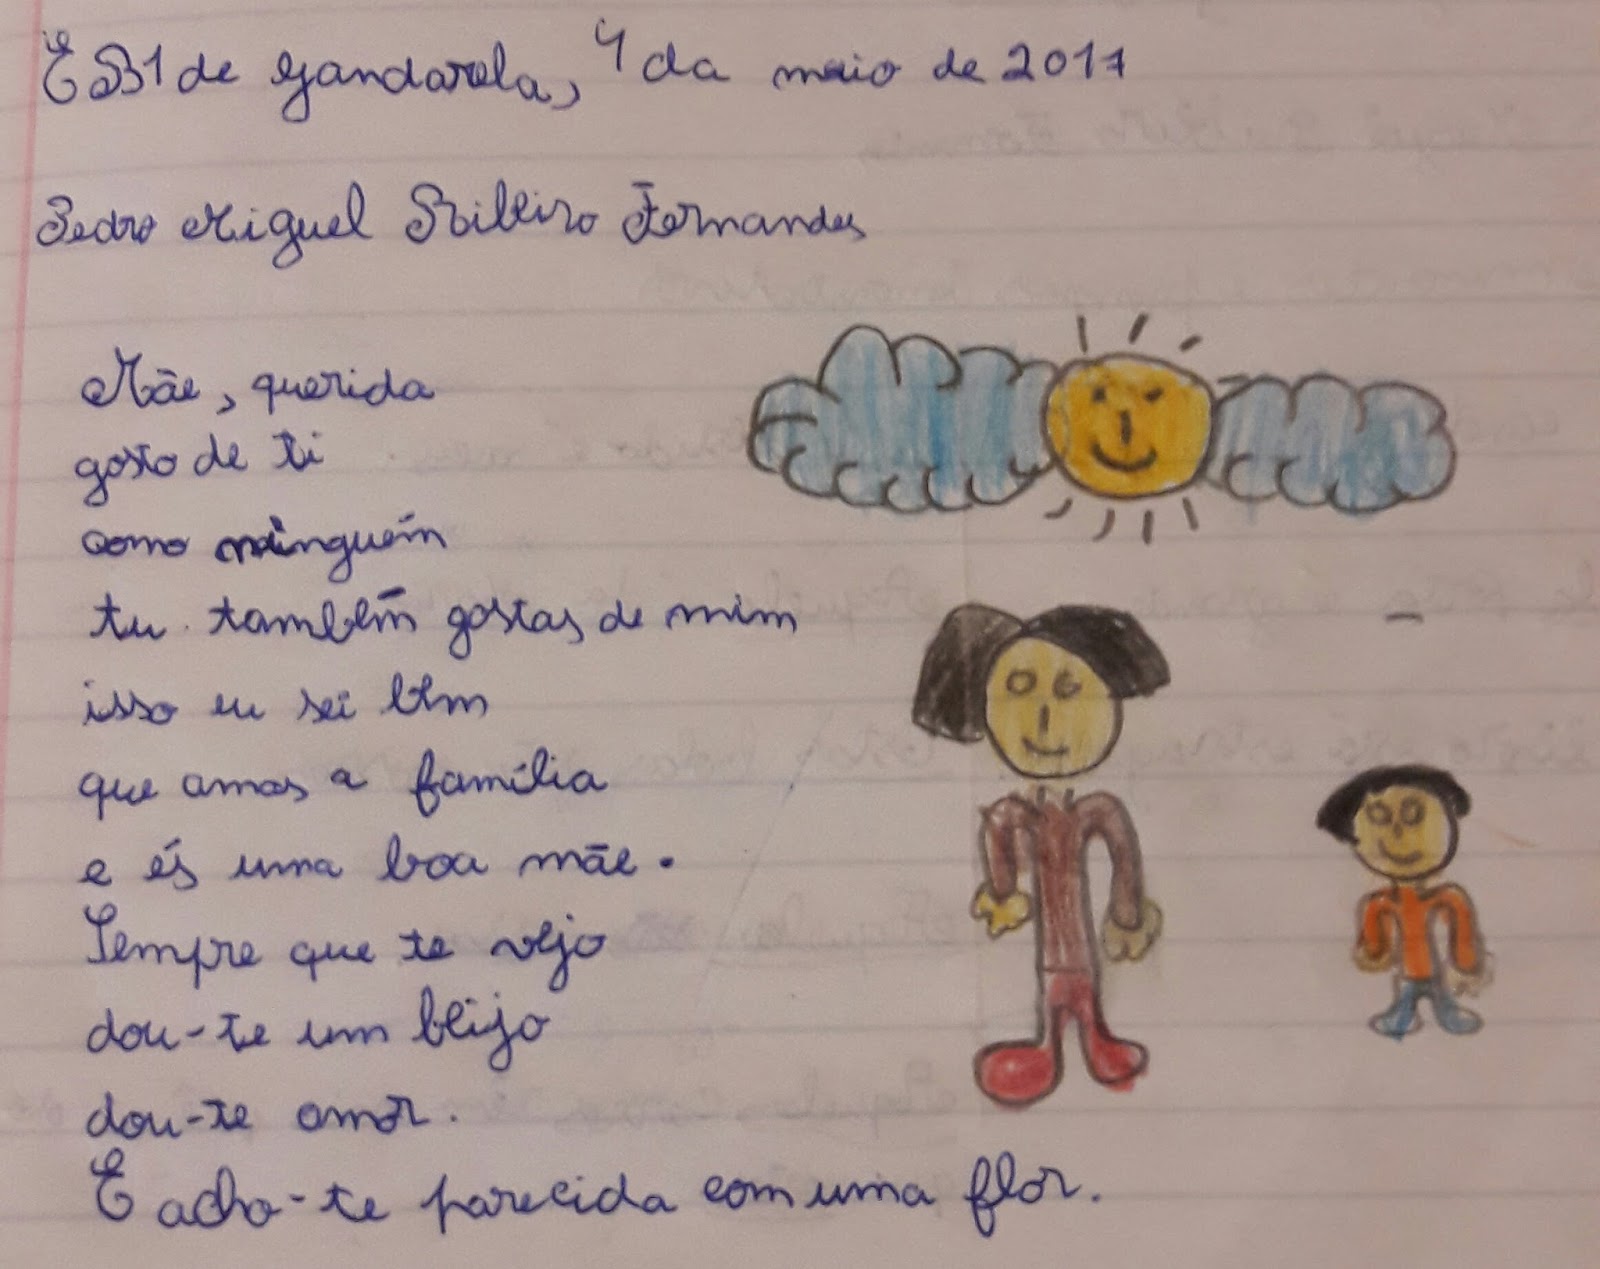 EB1 de Gandarela, 4 da maio de 2017
Pedro Miguel Ribeiro Fernandes
Mãe, querida
gosto de ti
como ninguém
tu também gostas de mim
isso eu sei bem
que amas a família
e és uma boa mãe.
Sempre que te vejo
dou-te um beijo
dou-te amor.
E acho-te parecida com uma flor.